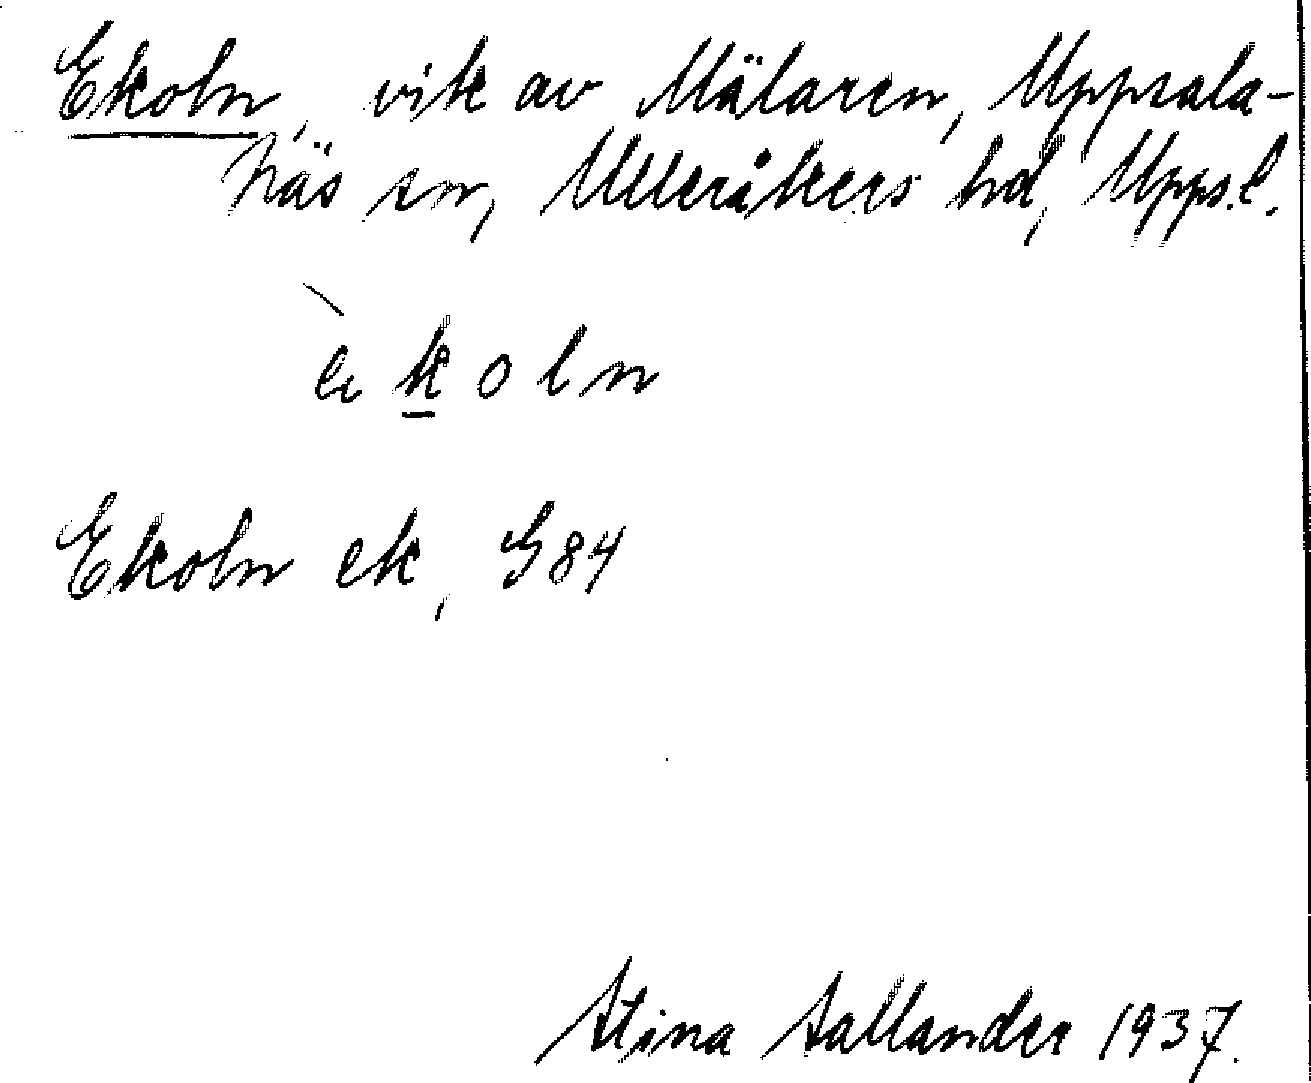 Ekoln, vik av Mälaren, Uppsala-
Näs sn, Ulleråkers hd, Upps.l.
èkoln
Ekoln ek, G84
Stina Sallander 1937.